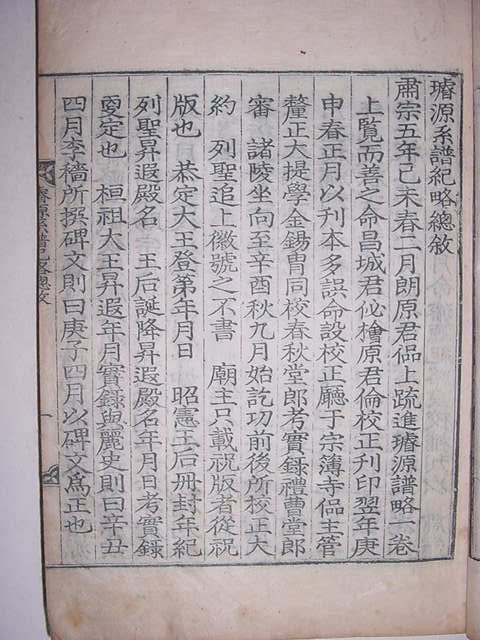 璿源系譜紀略總敘
肅宗五年己未春二月朗原君偘上疏進璿源譜略一卷
上覽而善之命昌城君佖檜原君倫校正刊印翌年庚
申春正月以刊本多誤命設校正廳于宗簿寺偘主管
釐正大提學金錫胄同校春秋堂郎考實錄禮曹堂郎
審 諸陵坐向至辛酉秋九月始訖功前後所校正大
約 列聖追上徽號之不書 廟主只載祝版者從祝
版也 恭定大王登第年月日 昭憲王后冊封年紀
列聖昇遐殿名 王后誕降昇遐殿名年月日考實錄
更定也 桓祖大王昇遐年月實錄與麗史則曰辛丑
四月李穡所撰碑文則曰庚子四月以碑文爲正也
璿源系譜紀略總敘
一